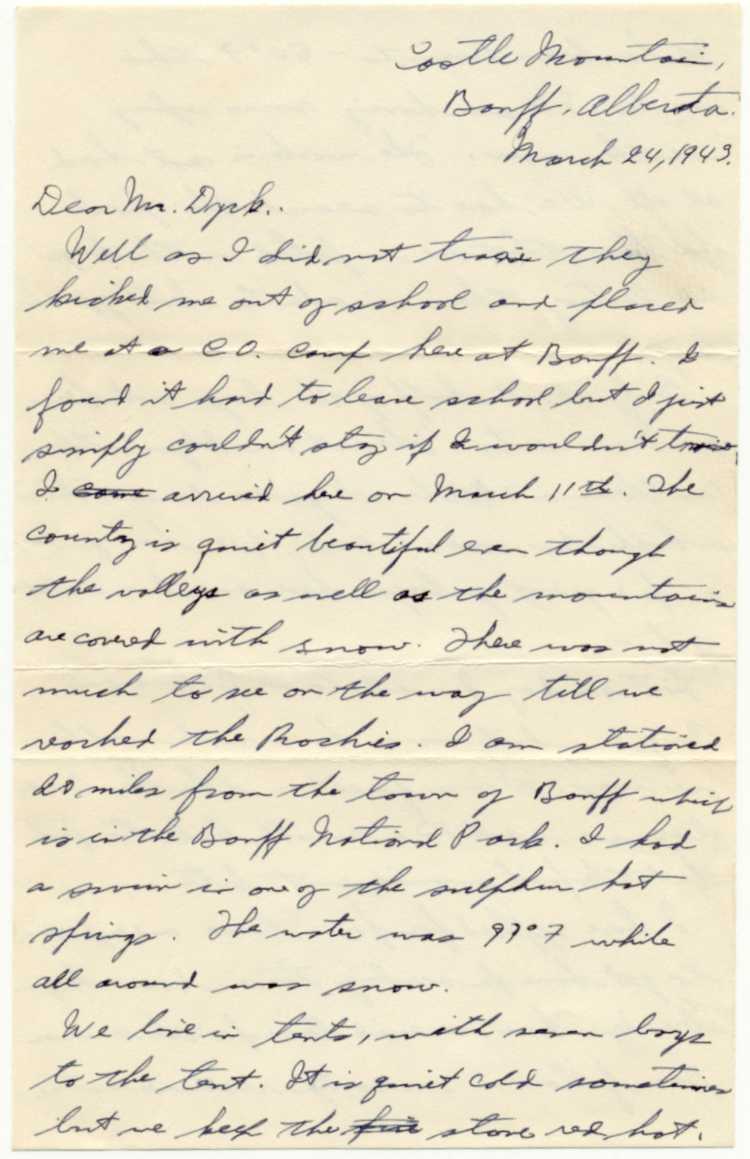 Castle Mountain,
Banff, Alberta.
March 24, 1943.
Dear Mr. Dyck..
Well as I did not train they
kicked me out of school and placed
me at a C.O. camp here at Banff. I
found it hard to leave school but I just
simply couldn't stay if I wouldn't train,
I came arrived here on March 11th. The
country is quiet beautiful even though
the valleys as well as the mountains
are covered with snow. There was not
much to see on the way till we
reached the Rockies. I am stationed
20 miles from the town of Banff which
is in the Banff National Park. I had
a swim in one of the sulphur hot
springs. The water was 97°F while
all around was snow.
We live in tents, with seven boys
to the tent. It is quiet cold sometimes
but we keep the fire stove red hot.